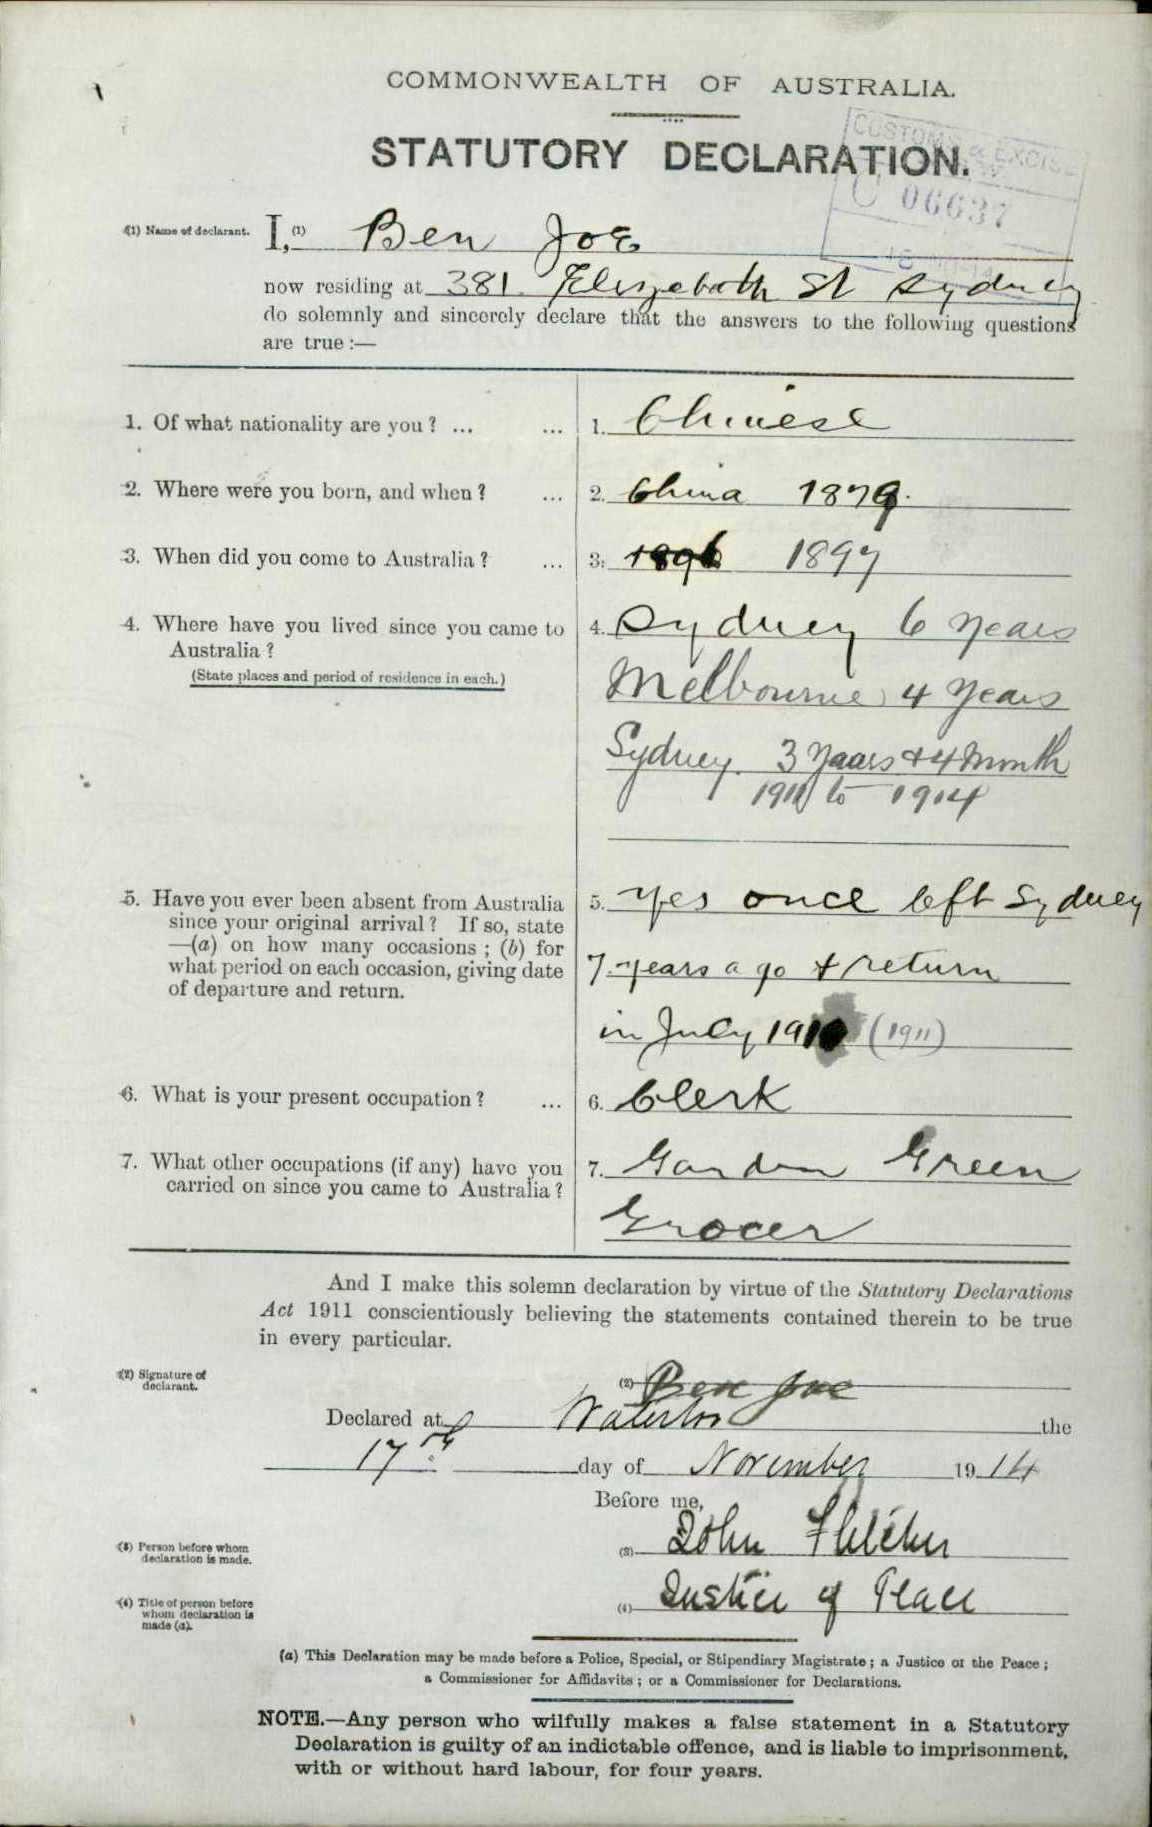 COMMONWEALTH OF AUSTRALIA.
STATUTORY DECLARATION.
CUSTOMS & EXCISE
C 06637
(1) Name of declarant. I, (1) Ben Joe
now residing at 381 Elizabeth St Sydney
do solemnly and sincerely declare that the answers to the following questions
are true :—
1. Of what nationality are you ? ... ... 1. Chinese
2. Where were you born, and when ? ... 2. China 1879.
3. When did you come to Australia ? ... 3. 1896 1897
4. Where have you lived since you came to 4. Sydney 6 years
Australia ?
(State places and period of residence in each.) Melbourne 4 years
Sydney. 3 yaars & 4 Month
1911 to 1914
5. Have you ever been absent from Australia 5. Yes once left Sydney
since your original arrival ? If so, state
—(a) on how many occasions ; (b) for
what period on each occasion, giving date 7 years ago & return
of departure and return.
in July 191 (1911)
6. What is your present occupation ? ... 6. Clerk
7. What other occupations (if any) have you 7. Garden Green
carried on since you came to Australia ?
Grocer
And I make this solemn declaration by virtue of the Statutory Declarations
Act 1911 conscientiously believing the statements contained therein to be true
in every particular.
(2) Signature of declarant. (2) Ben Joe
Declared at Waterloo the
17th day of November 1914
Before me,
(3) Person before whom declaration is made. (3) John Fletcher
(4) Title of person before whom declaration is made (a). (4) Justice of Peace
(a) This Declaration may be made before a Police, Special, or Stipendiary Magistrate ; a Justice of the Peace ;
a Commissioner for Affidavits ; or a Commissioner for Declarations.
NOTE.—Any person who wilfully makes a false statement in a Statutory
Declaration is guilty of an indictable offence, and is liable to imprisonment,
with or without hard labour, for four years.